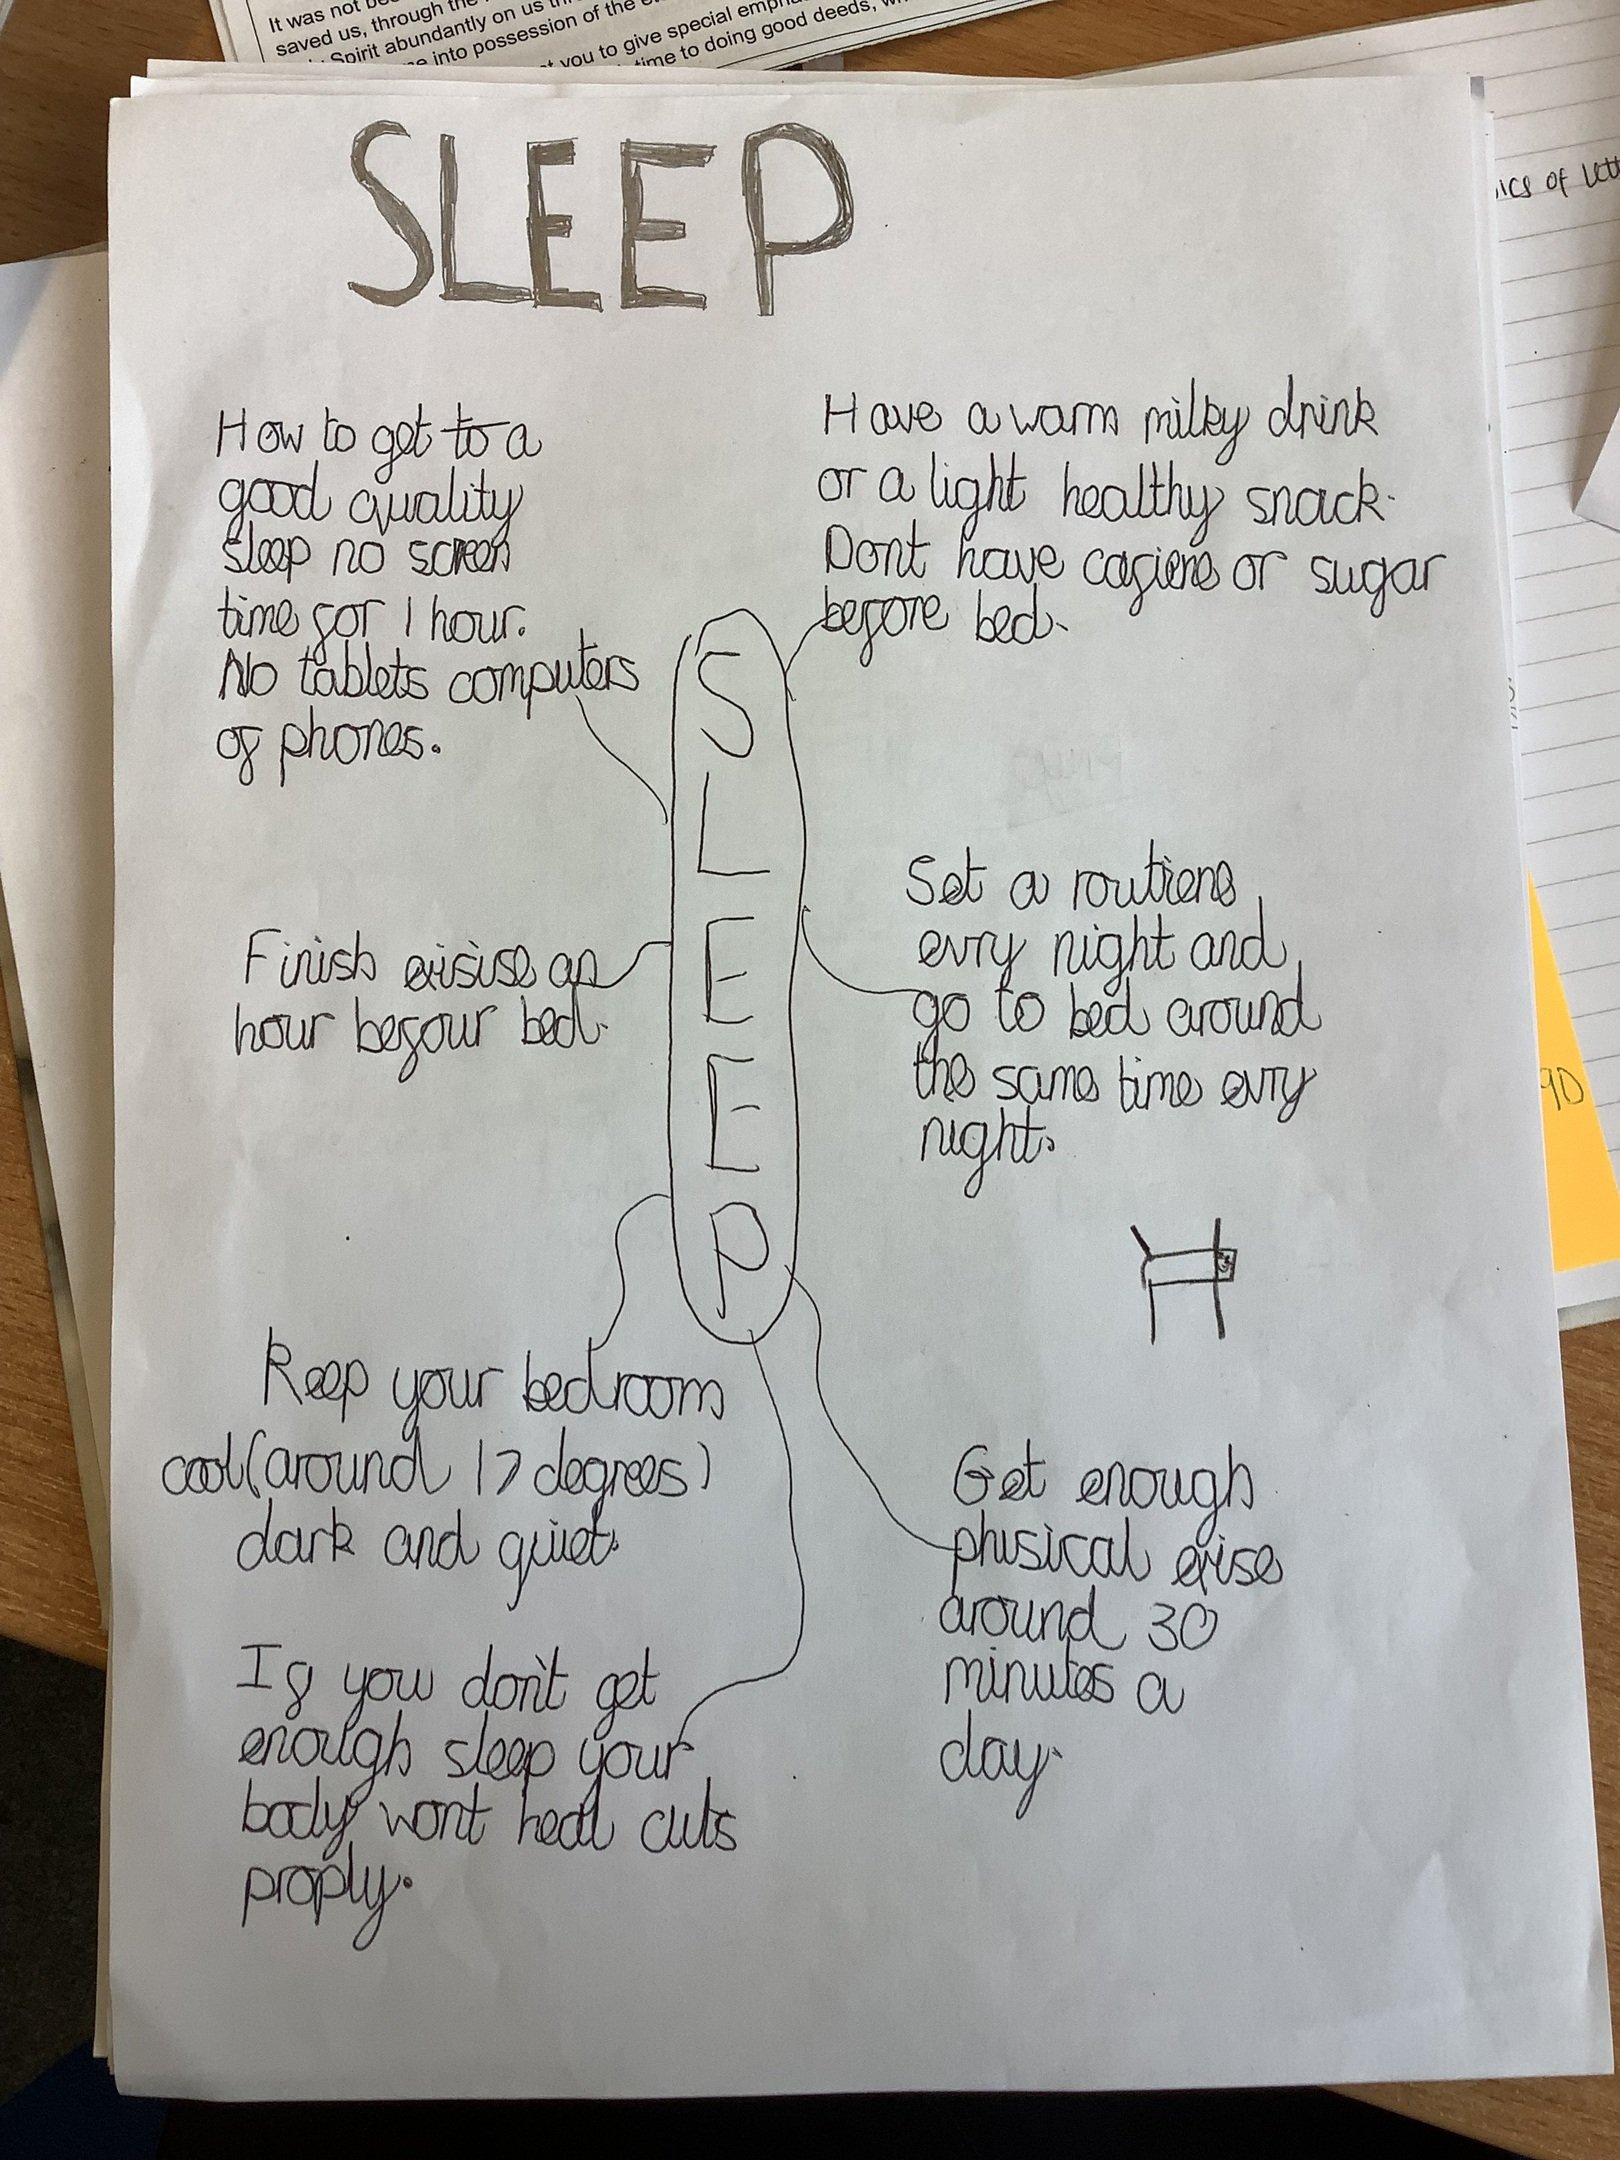 It was not be
saved us, through the
Spirit abundantly on us
into possession of the
you to give special emph
time to doing good deeds,
ics of
SLEEP
How to get to a
good quality
sleep no screen
time for 1 hour.
No tablets computers
of phones.
Have a warm milky drink
or a light healthy snack.
Dont have cafiene or sugar
before bed.
S
L
E
E
P
Finish exisise an
hour befour bed.
Set a routiene
evry night and
go to bed around
the same time evry
night.
90
Keep your bedroom
cool (around 17 degrees)
dark and quiet.
Get enough
phisical exise
around 30
minutes a
day.
If you don't get
enough sleep your
body wont heal cuts
proply.